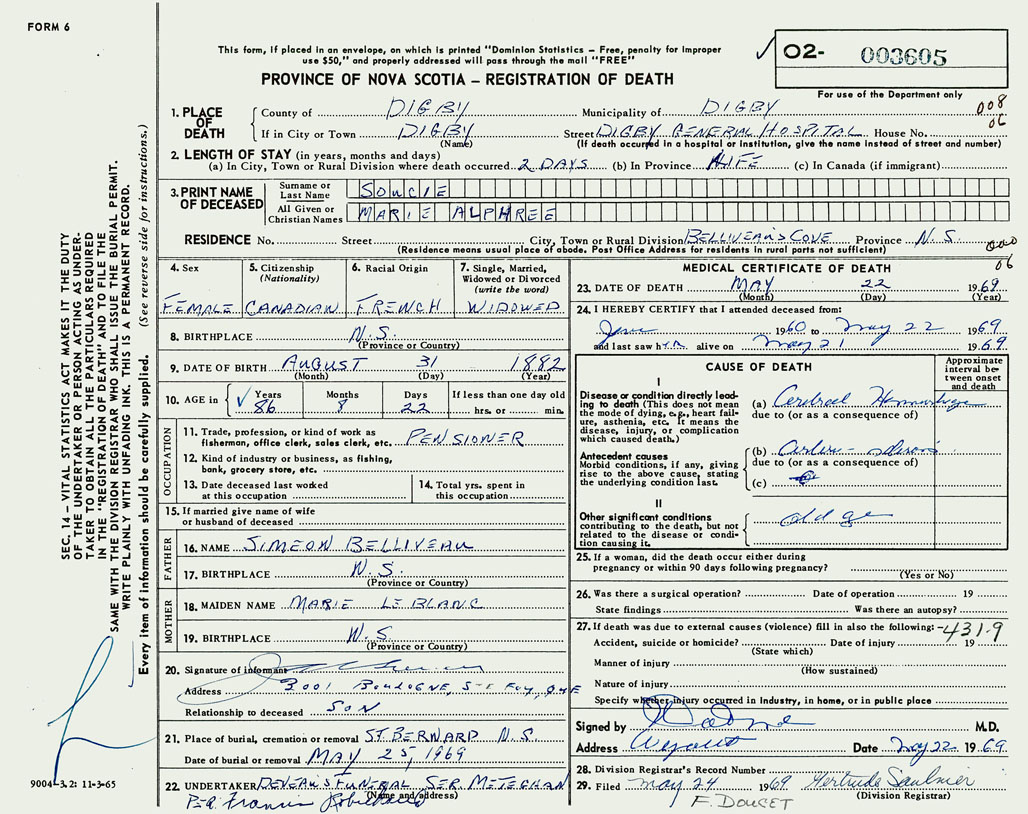 FORM 6
This form, if placed in an envelope, on which is printed "Dominion Statistics – Free, penalty for improper
use $50," and properly addressed will pass through the mail "FREE"
PROVINCE OF NOVA SCOTIA – REGISTRATION OF DEATH
✓ O2- 003605
For use of the Department only
SEC. 14 – VITAL STATISTICS ACT MAKES IT THE DUTY
OF THE UNDERTAKER OR PERSON ACTING AS UNDER-
TAKER TO OBTAIN ALL THE PARTICULARS REQUIRED
IN THE "REGISTRATION OF DEATH" AND TO FILE THE
SAME WITH THE DIVISION REGISTRAR WHO SHALL ISSUE THE BURIAL PERMIT.
WRITE PLAINLY WITH UNFADING INK. THIS IS A PERMANENT RECORD.
Every item of information should be carefully supplied. (See reverse side for instructions.)
1. PLACE OF DEATH County of DIGBY Municipality of DIGBY 008
If in City or Town DIGBY Street DIGBY GENERAL HOSPITAL House No. 06
(Name) (If death occurred in a hospital or institution, give the name instead of street and number)
2. LENGTH OF STAY (in years, months and days)
(a) In City, Town or Rural Division where death occurred 2 DAYS (b) In Province LIFE (c) In Canada (if immigrant)
3. PRINT NAME OF DECEASED Surname or Last Name SOUCIE
All Given or Christian Names MARIE ALPHREE
RESIDENCE No. Street City, Town or Rural Division BELLIVEAU'S COVE Province N.S.
(Residence means usual place of abode. Post Office Address for residents in rural parts not sufficient)
06
4. Sex 5. Citizenship (Nationality) 6. Racial Origin 7. Single, Married, Widowed or Divorced (write the word)
FEMALE CANADIAN FRENCH WIDOWED
8. BIRTHPLACE N.S.
(Province or Country)
9. DATE OF BIRTH AUGUST 31 1882
(Month) (Day) (Year)
10. AGE in Years Months Days If less than one day old
✓ 86 8 22 hrs. or min.
OCCUPATION
11. Trade, profession, or kind of work as fisherman, office clerk, sales clerk, etc. PENSIONER
12. Kind of industry or business, as fishing, bank, grocery store, etc.
13. Date deceased last worked at this occupation 14. Total yrs. spent in this occupation
15. If married give name of wife or husband of deceased
FATHER
16. NAME SIMEON BELLIVEAU
17. BIRTHPLACE N.S.
(Province or Country)
MOTHER
18. MAIDEN NAME MARIE LE BLANC
19. BIRTHPLACE N.S.
(Province or Country)
20. Signature of informant
Address 3001 BOULOGNE, STE FOY, QUE
Relationship to deceased SON
21. Place of burial, cremation or removal ST. BERNARD N.S.
Date of burial or removal MAY 25, 1969
22. UNDERTAKER DEVEAU'S FUNERAL SER. METEGHAN
(Name and address)
Per. Francis Robichaud
9004–3.2: 11-3-65
MEDICAL CERTIFICATE OF DEATH
23. DATE OF DEATH MAY 22 1969
(Month) (Day) (Year)
24. I HEREBY CERTIFY that I attended deceased from:
1960 to May 22 1969
and last saw her alive on May 21 1969
CAUSE OF DEATH
Approximate interval between onset and death
I
Disease or condition directly leading to death (This does not mean the mode of dying, e.g., heart failure, asthenia, etc. It means the disease, injury, or complication which caused death.)
(a) Cerebral Hemorrhage
due to (or as a consequence of)
Antecedent causes
Morbid conditions, if any, giving rise to the above cause, stating the underlying condition last.
(b) Arterio-sclerosis
due to (or as a consequence of)
(c)
II
Other significant conditions
contributing to the death, but not related to the disease or condition causing it.
old age
25. If a woman, did the death occur either during pregnancy or within 90 days following pregnancy?
(Yes or No)
26. Was there a surgical operation? Date of operation 19
State findings Was there an autopsy?
27. If death was due to external causes (violence) fill in also the following: – 431.9
Accident, suicide or homicide? Date of injury 19
(State which)
Manner of injury
(How sustained)
Nature of injury
Specify whether injury occurred in industry, in home, or in public place
Signed by M.D.
Address Weymouth Date May 22 1969
28. Division Registrar's Record Number
29. Filed May 24 1969 Gertrude Saulnier
(Division Registrar)
F. DOUCET